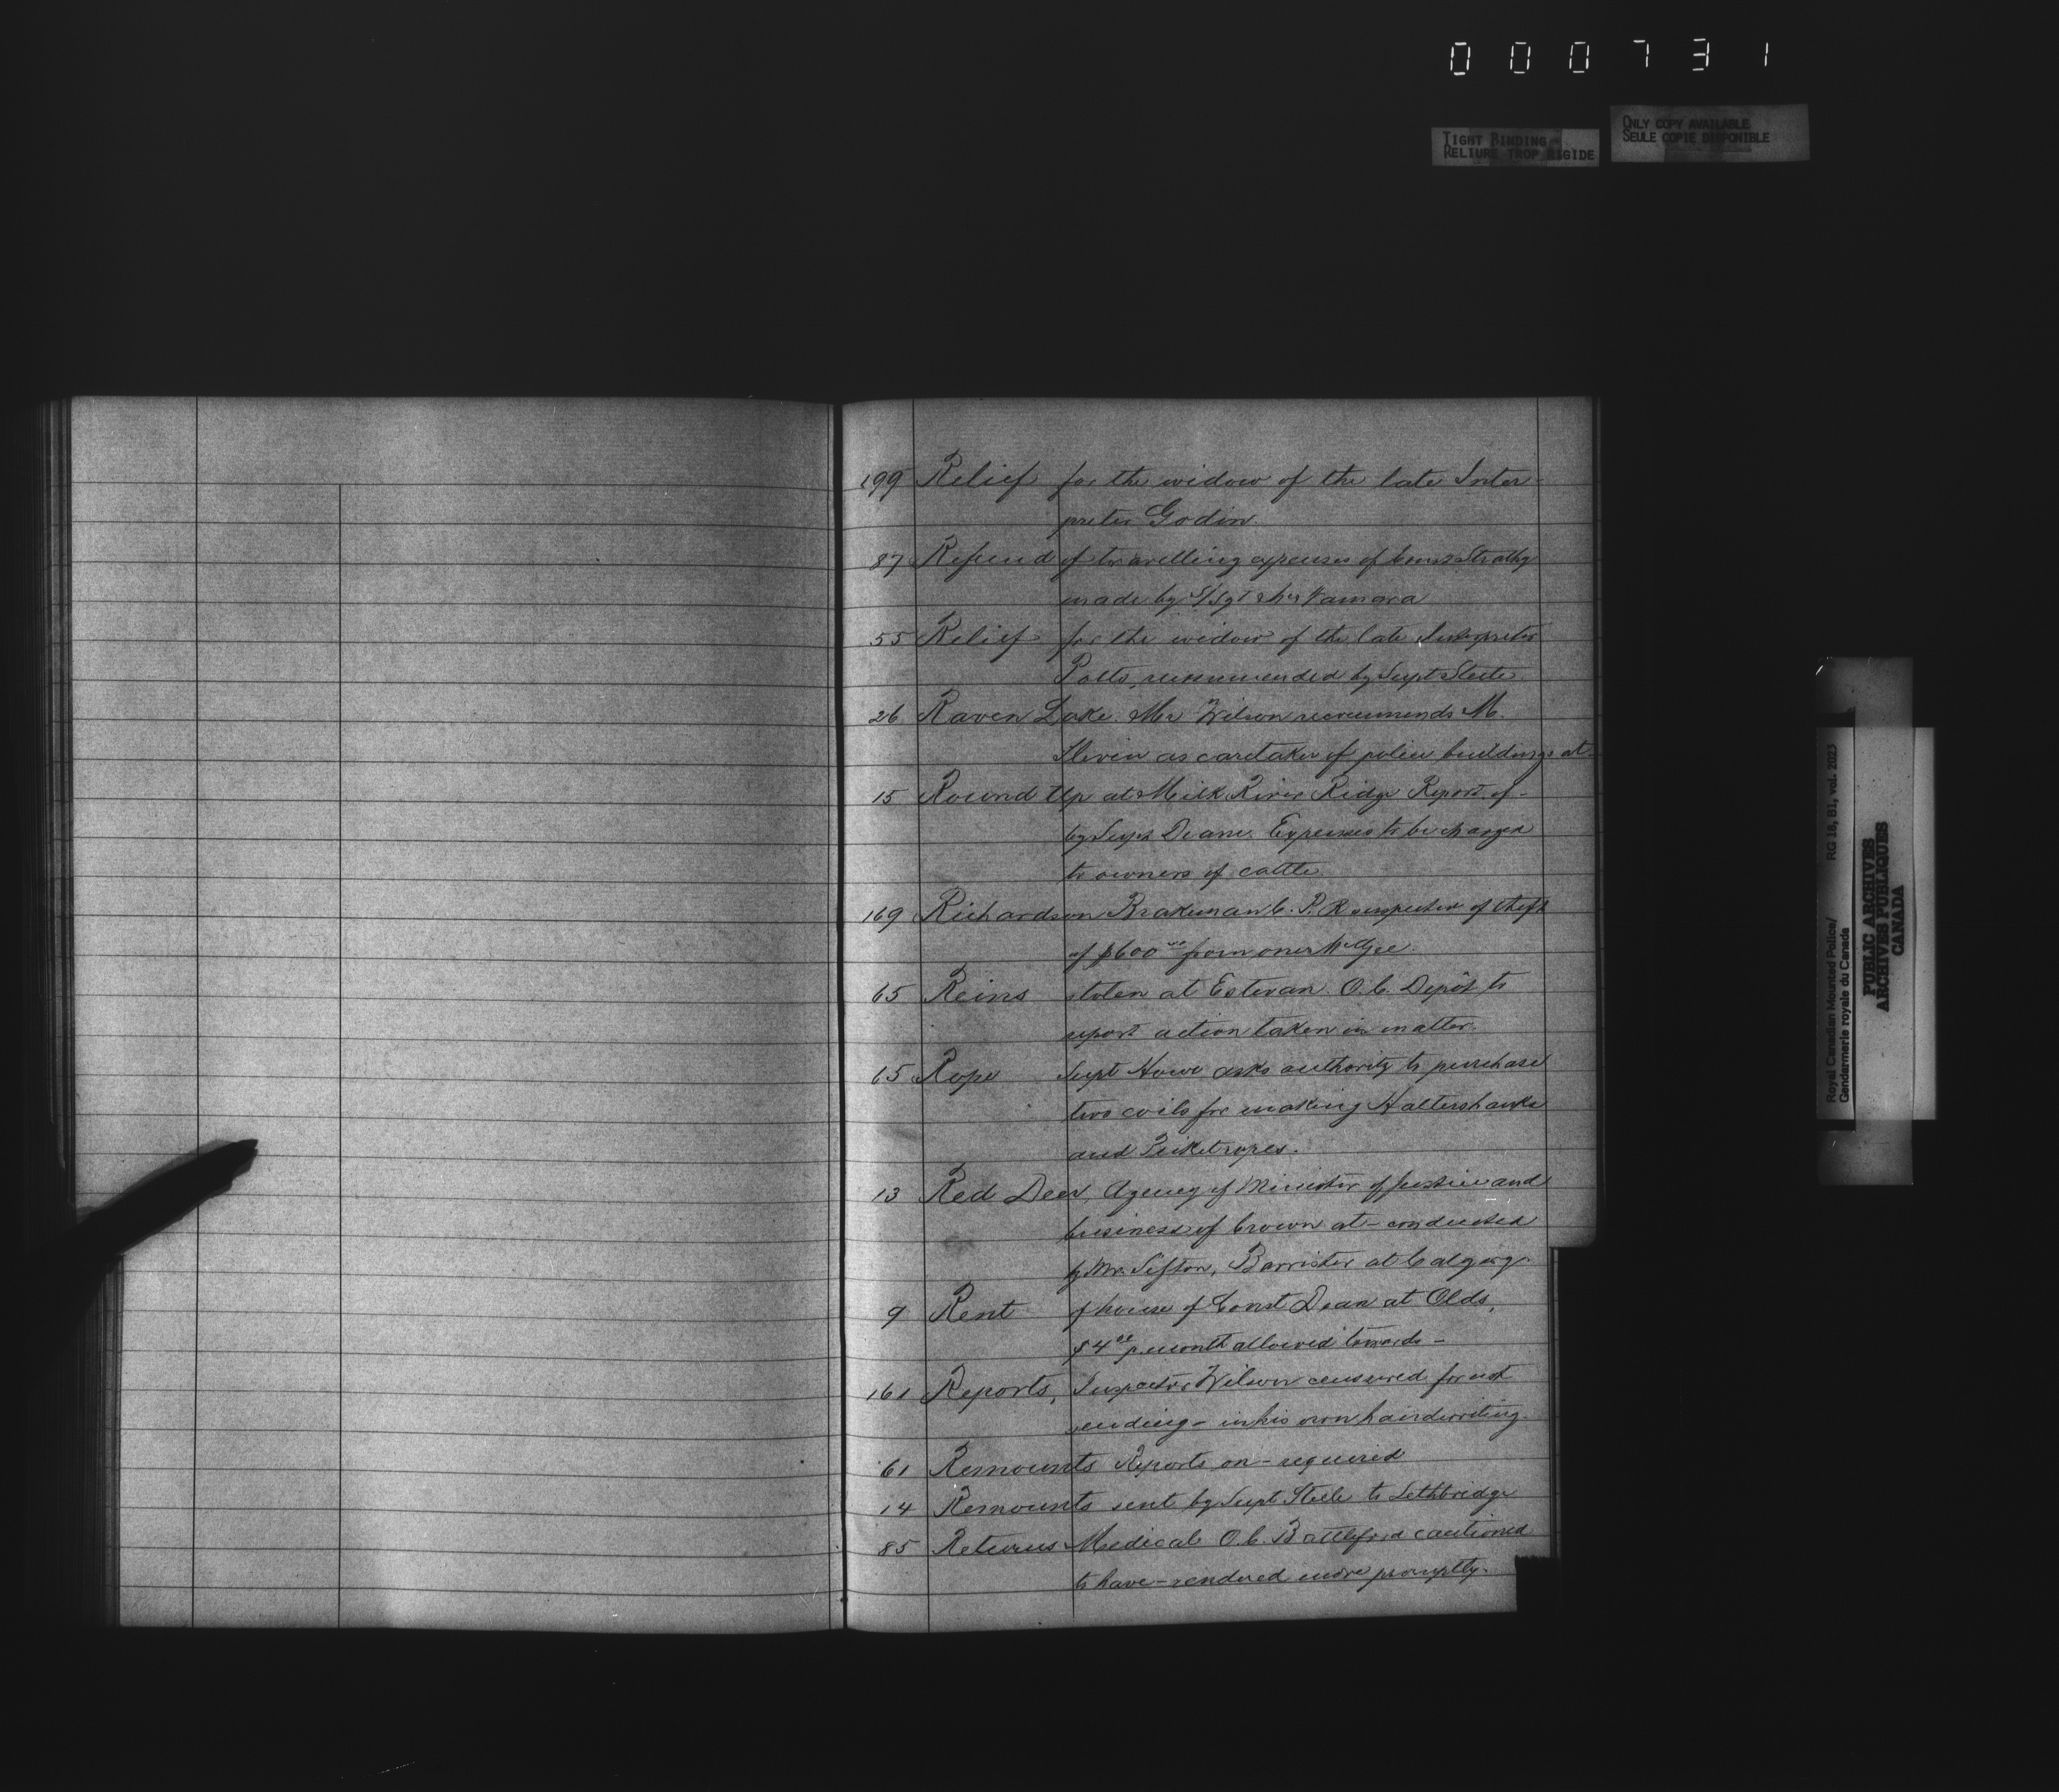 000731
TIGHT BINDING
RELIURE TROP RIGIDE
ONLY COPY AVAILABLE
SEULE COPIE DISPONIBLE
199 Relief for the widow of the late Inter-
preter Godin
87 Refund of travelling expenses of Const Strathy
made by S/Sgt McNamara
55 Relief for the widow of the late Interpreter
Potts, recommended by Supt Steele
26 Raven Lake. Mr Wilson recommends M.
Slevin as caretaker of police buildings at-
15 Round Up at Milk River Ridge Report of-
by Supt Deane. Expenses to be charged
to owners of cattle
169 Richardson Brakeman C. P. R suspected of theft
of $600 00 from one McGee.
65 Reins stolen at Estevan. O.C. Depôt to
report action taken in matter.
65 Rope Supt Howe asks authority to purchase
two coils for making Haltershanks
and Picketropes.
13 Red Deer, Agency of Minister of Justice and
business of Crown at- conducted
by Mr. Sifton, Barrister at Calgary.
9 Rent of house of Const Dean at Olds,
$4 00 p. month allowed towards-
161 Reports, Inspector Wilson censured for not
sending- in his own handwriting.
61 Remounts Reports on- required
14 Remounts sent by Supt Steele to Lethbridge
85 Returns Medical O.C. Battleford cautioned
to have- rendered more promptly.
Royal Canadian Mounted Police/ RG 18, B1, vol. 2023
Gendarmerie royale du Canada
PUBLIC ARCHIVES
ARCHIVES PUBLIQUES
CANADA